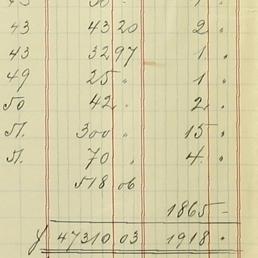 43 43 20 2 "
43 32 97 1 "
49 25 " 1 "
50 42 " 2 "
51. 300 " 15 "
51. 70 " 4 "
518 06
1865 -
47310 03 1918 "